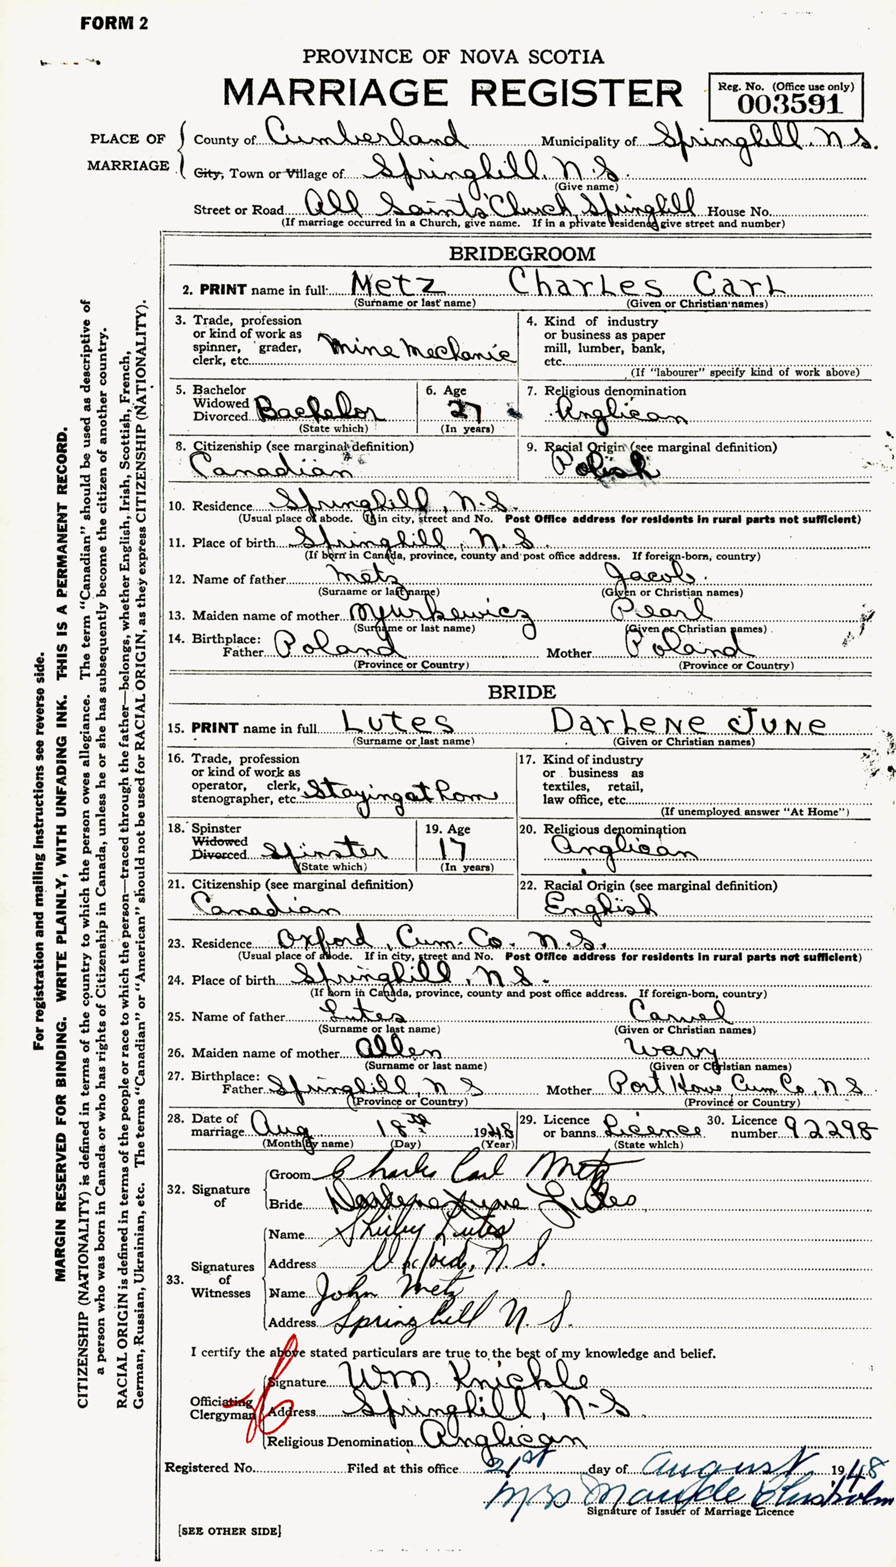 FORM 2
PROVINCE OF NOVA SCOTIA
MARRIAGE REGISTER
Reg. No. (Office use only)
003591
PLACE OF MARRIAGE
County of Cumberland Municipality of Springhill, N.S.
City, Town or Village of Springhill, N.S.
(Give name)
Street or Road All Saints' Church, Springhill House No.
(If marriage occurred in a Church, give name. If in a private residence, give street and number)
BRIDEGROOM
2. PRINT name in full: Metz Charles Carl
(Surname or last name) (Given or Christian names)
3. Trade, profession or kind of work as spinner, grader, clerk, etc. Mine Mechanic
4. Kind of industry or business as paper mill, lumber, bank, etc.
(If "labourer" specify kind of work above)
5. Bachelor Widowed Divorced Bachelor
(State which)
6. Age 27
(In years)
7. Religious denomination
Anglican
8. Citizenship (see marginal definition)
Canadian
9. Racial Origin (see marginal definition)
Polish
10. Residence Springhill, N.S.
(Usual place of abode. If in city, street and No. Post Office address for residents in rural parts not sufficient)
11. Place of birth Springhill, N.S.
(If born in Canada, province, county and post office address. If foreign-born, country)
12. Name of father Metz Jacob
(Surname or last name) (Given or Christian names)
13. Maiden name of mother Myurkewicz Pearl
(Surname or last name) (Given or Christian names)
14. Birthplace: Father Poland Mother Poland
(Province or Country) (Province or Country)
BRIDE
15. PRINT name in full Lutes Darlene June
(Surname or last name) (Given or Christian names)
16. Trade, profession or kind of work as operator, clerk, stenographer, etc. Staying at hom
17. Kind of industry or business as textiles, retail, law office, etc.
(If unemployed answer "At Home")
18. Spinster Widowed Divorced Spinster
(State which)
19. Age 17
(In years)
20. Religious denomination
Anglican
21. Citizenship (see marginal definition)
Canadian
22. Racial Origin (see marginal definition)
English
23. Residence Oxford, Cum. Co. N.S.
(Usual place of abode. If in city, street and No. Post Office address for residents in rural parts not sufficient)
24. Place of birth Springhill, N.S.
(If born in Canada, province, county and post office address. If foreign-born, country)
25. Name of father Lutes
(Surname or last name) (Given or Christian names)
26. Maiden name of mother Allen
(Surname or last name) (Given or Christian names)
27. Birthplace: Father Springhill, N S Mother Port Howe Cum Co, N S
(Province or Country) (Province or Country)
28. Date of marriage Aug 18th 1948
(Month by name) (Day) (Year)
29. Licence or banns Licence
(State which)
30. Licence number 92298
32. Signature of
Groom Charles Carl Metz
Bride Darlene June Lutes
33. Signatures of Witnesses
Name Shirley Lutes
Address Oxford, N.S.
Name John Metz
Address Springhill N.S.
I certify the above stated particulars are true to the best of my knowledge and belief.
Officiating Clergyman
Signature Wm Knickle
Address Springhill, N-S
Religious Denomination Anglican
Registered No. Filed at this office 21st day of August 1948
Mrs Maude Chisholm
Signature of Issuer of Marriage Licence
[SEE OTHER SIDE]
For registration and mailing instructions see reverse side.
MARGIN RESERVED FOR BINDING. WRITE PLAINLY, WITH UNFADING INK. THIS IS A PERMANENT RECORD.
CITIZENSHIP (NATIONALITY) is defined in terms of the country to which the person owes allegiance. The term "Canadian" should be used as descriptive of
a person who was born in Canada or who has rights of Citizenship in Canada, unless he or she has subsequently become the citizen of another country.
RACIAL ORIGIN is defined in terms of the people or race to which the person—traced through the father—belongs, whether English, Irish, Scottish, French,
German, Russian, Ukrainian, etc. The terms "Canadian" or "American" should not be used for RACIAL ORIGIN, as they express CITIZENSHIP (NATIONALITY).